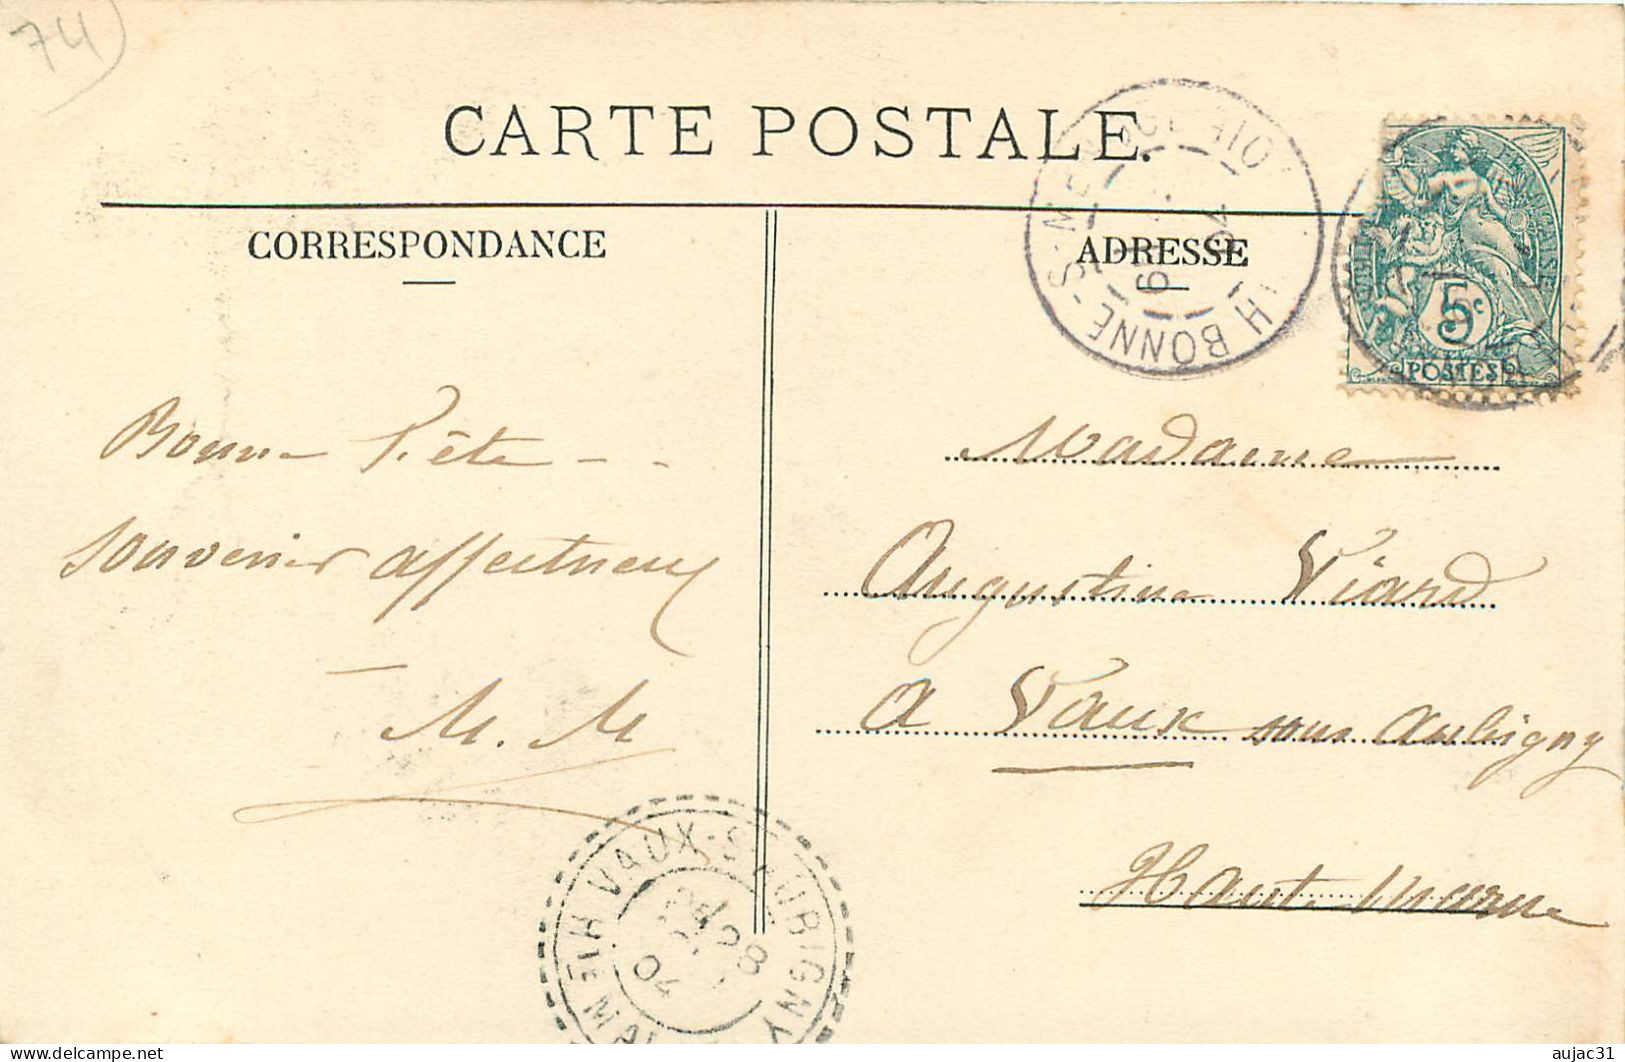 74
CARTE POSTALE.
CORRESPONDANCE
ADRESSE
BONNE-S-ME
H
6
04
FRANÇAISE
5c
POSTES
Bonne Fête - -
Souvenir affectueux
M. M
Madame
Augustine Viard
A Vaux sous Aubigny
Haute Marne
VAUX-S-AUBIGNY
Hte MA
8
04
aujac31